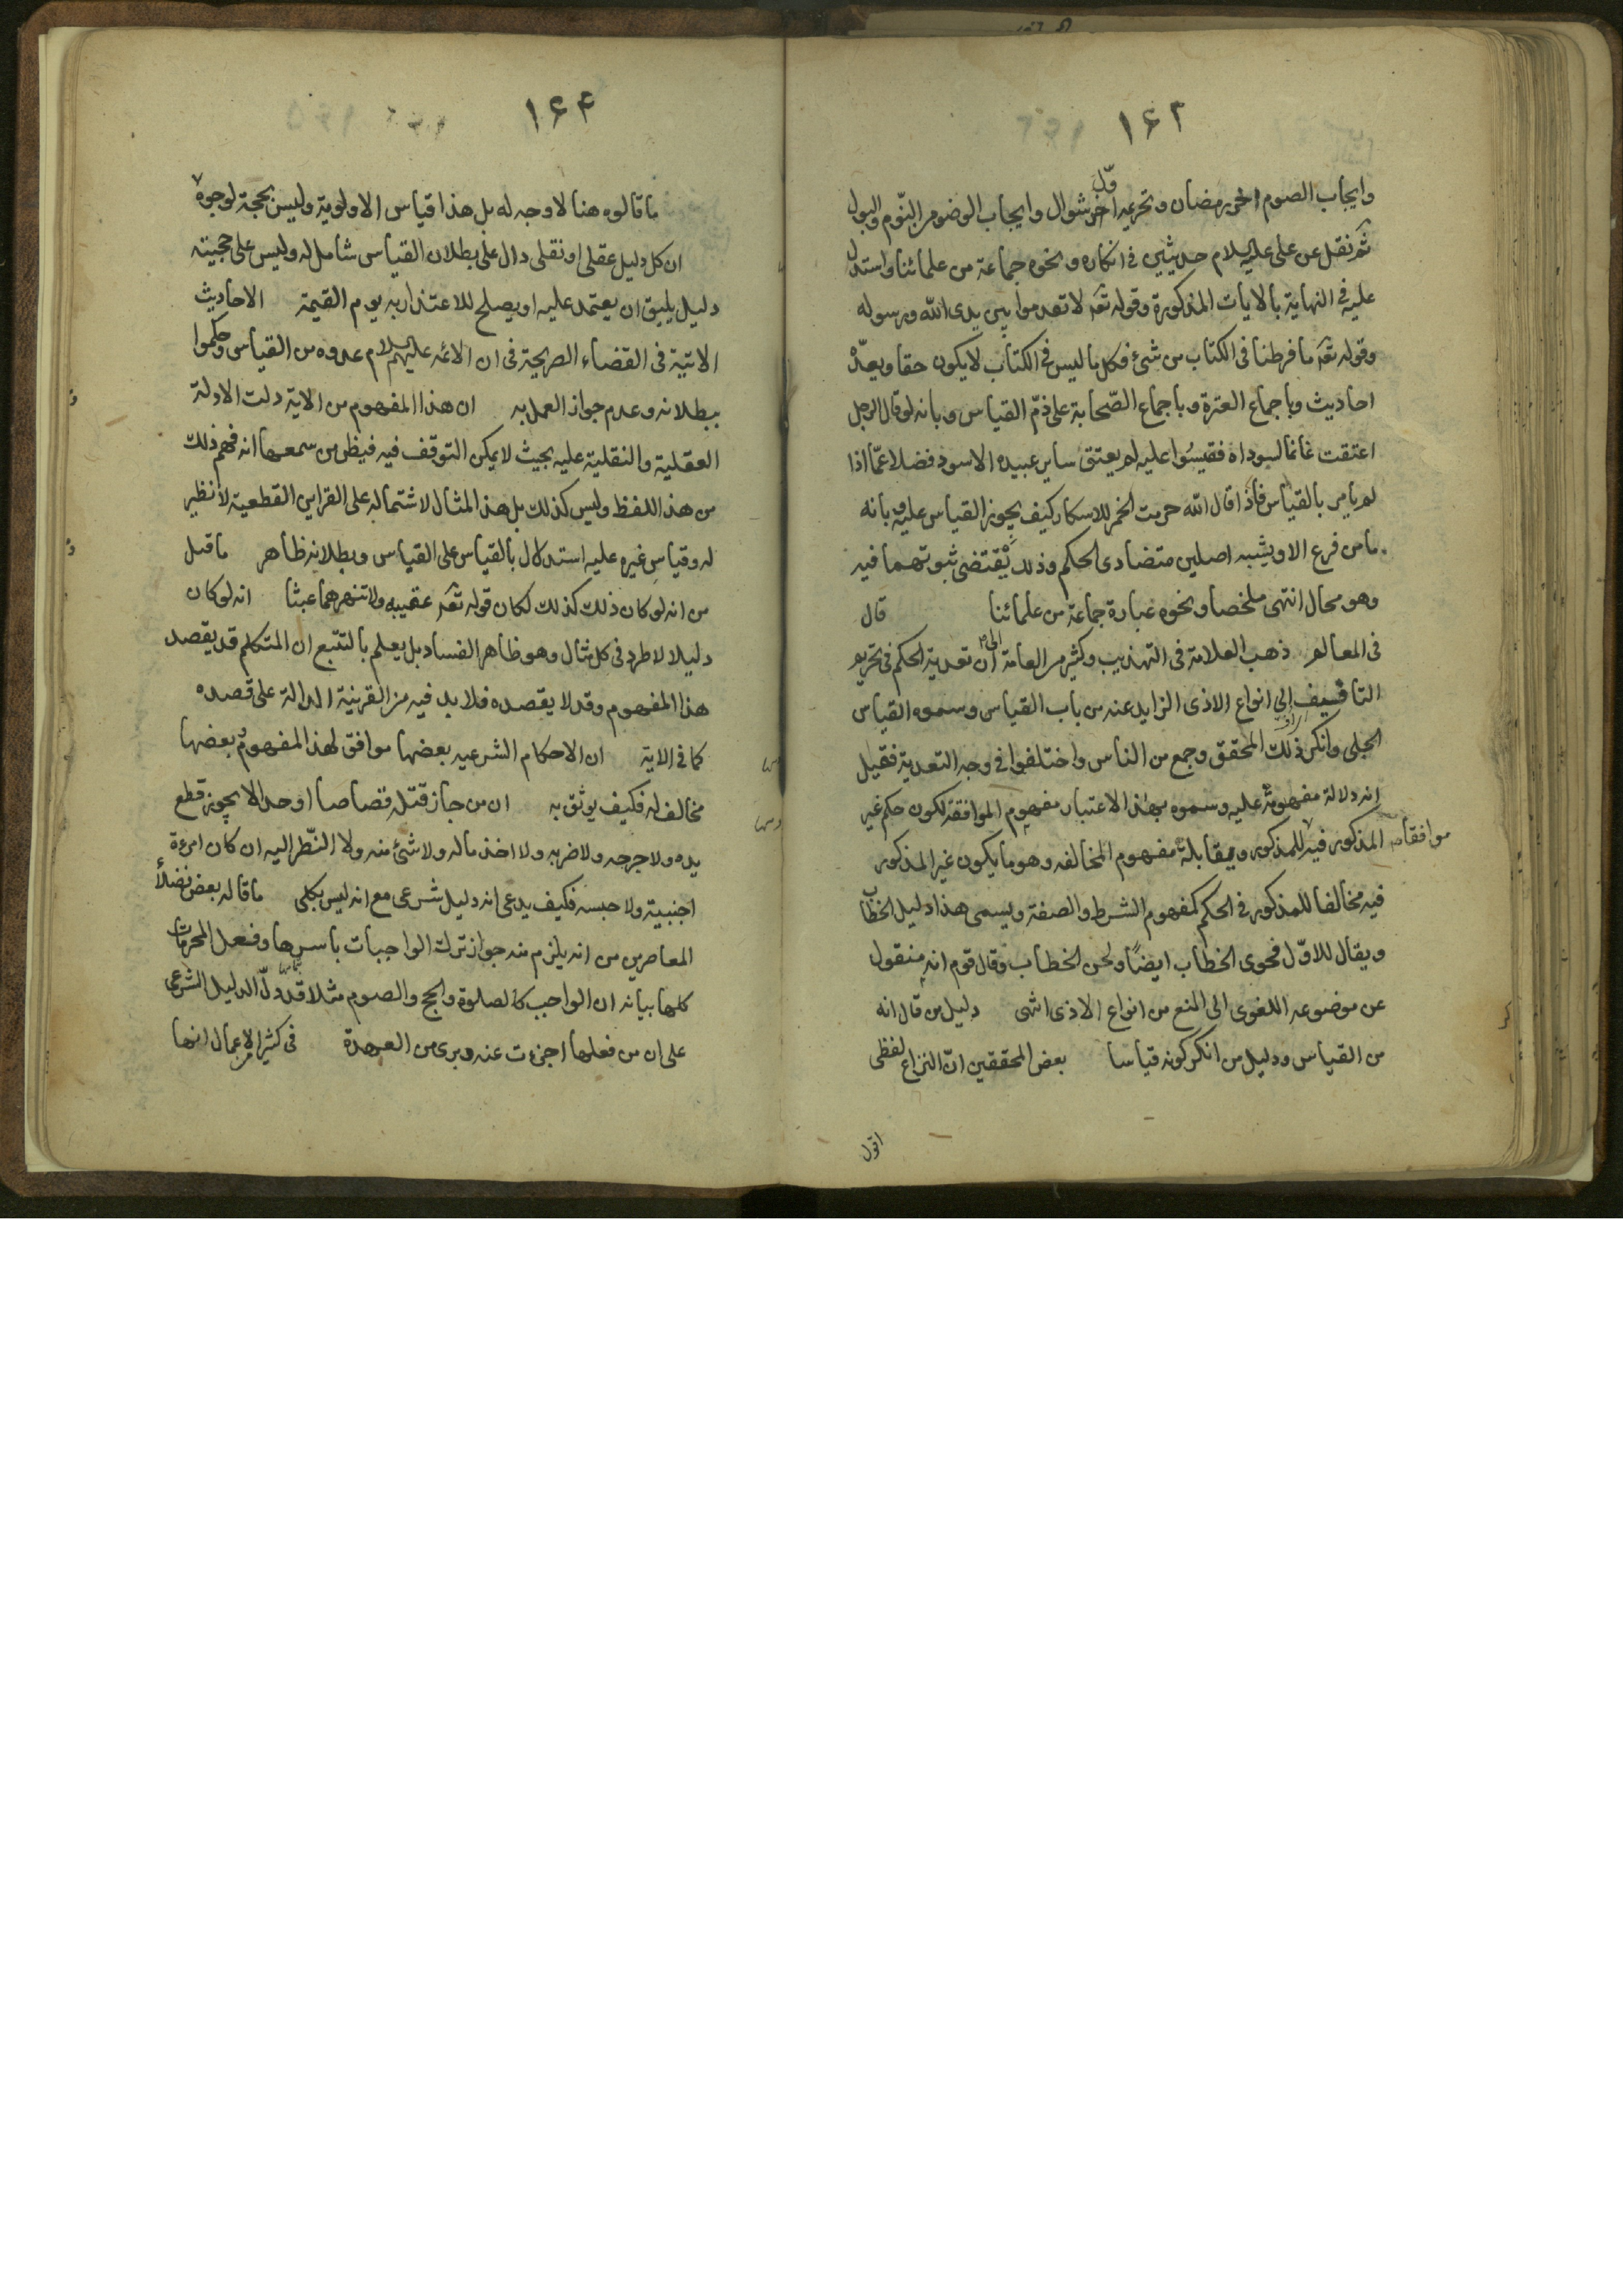 ۱۶۳
وايجاب الصوم اخر رمضان وتحريمه اوّل شوال وايجاب الوضوء من النّوم والبول
ثم نقل عن على عليه السلام حديثين فى انكاره ونحوه جماعة من علمائنا واستدل
عليه فى النهاية بالايات المذكورة وقوله تعه لا تقدموا بين يدى الله ورسوله
وقوله تعه ما فرطنا فى الكتاب من شئ فكل ما ليس فى الكتاب لا يكون حقا وبعدّة
احاديث وباجماع العترة وباجماع الصّحابة على ذمّ القياس وبانه لو قال الرجل
اعتقت غانما لسوداه فقيسُوا عليه لم يعتق ساير عبيده الاسود فضلا عمّا اذا
لم يامر بالقياس فاذا قال الله حرمت الخمر للاسكار كيف يجوز القياس عليه وبانه
ما من فرع الا ويشبه اصلين متضادى الحكم وذلك يقتضى ثبوتهما فيه
وهو محال انتهى ملخصا ونحوه عبارة جماعة من علمائنا قال
فى المعالم ذهب العلامة فى التهذيب وكثير من العامة الى ان تعدية الحكم فى تحريم
التافيف الى انواع الاذى الزايد عنه من باب القياس وسموه القياس
الجلى وانكر ذلك المحقق وجمع من الناس واختلفوا فى وجه التعدية فقيل
انه دلالة مفهومه عليه وسموه بهذا الاعتبار مفهوم الموافقة لكون حكم غير
المذكور فيه موافقا للمذكور ويقابله مفهوم المخالفه وهو ما يكون غير المذكور
فيه مخالفا للمذكور فى الحكم كمفهوم الشرط والصفة ويسمى هذا دليل الخطاب
ويقال للاوّل فحوى الخطاب ايضًا ولحن الخطاب وقال قوم انه منقول
عن موضوعه اللغوى الى المنع من انواع الاذى انتهى دليل من قال انه
من القياس ودليل من انكر كونه قياسا بعض المحققين انّ النزاع لفظى
اقول
۱۶۴
ما قالوه هنا لا وجه له بل هذا قياس الاولوية وليس بحجة لوجوه
ان كل دليل عقلى او نقلى دال على بطلان القياس شامل له وليس على حجيته
دليل يليق ان يعتمد عليه او يصلح للاعتذار به يوم القيمة الاحاديث
الاتية فى القضاء الصريحة فى ان الائمه عليهم السلام عدوه من القياس وحكموا
ببطلانه وعدم جواز العمل به ان هذا المفهوم من الاية دلت الادلة
العقلية والنقلية عليه بحيث لا يمكن التوقف فيه فيظن من سمعها انه فهم ذلك
من هذا اللفظ وليس كذلك بل هذا المثال لاشتماله على القراين القطعية لا نظير
له وقياس غيره عليه استدلال بالقياس على القياس وبطلانه ظاهر ما قيل
من انه لو كان ذلك كذلك لكان قوله تعه عقيبه ولا تنهرهما عبثا انه لو كان
دليلا لاطرد فى كل مثال وهو ظاهر الفساد بل يعلم بالتتبع ان المتكلم قد يقصد
هذا المفهوم وقد لا يقصده فلا بد فيه من القرينة الدالة على قصده
كما فى الاية ان الاحكام الشرعيه بعضها موافق لهذا المفهوم وبعضها
مخالف له فكيف يوثق به ان من جاز قتله قصاصا او حدا لا يجوز قطع
يده ولا جرحه ولا ضربه ولا اخذ ماله ولا شئ منه ولا النّظر اليه ان كان امرءة
اجنبية ولا حبسه فكيف يدعى انه دليل شرعى مع انه ليس بكلى ما قاله بعض فضلاء
المعاصرين من انه يلزم منه جواز ترك الواجبات باسرها وفعل المحرمات
كلها بيانه ان الواجب كالصلوة والحج والصوم مثلا قد دلّ الدليل الشرعى
على ان من فعلها اجزءت عنه وبرى من العهدة فى كثير من الاعمال انها